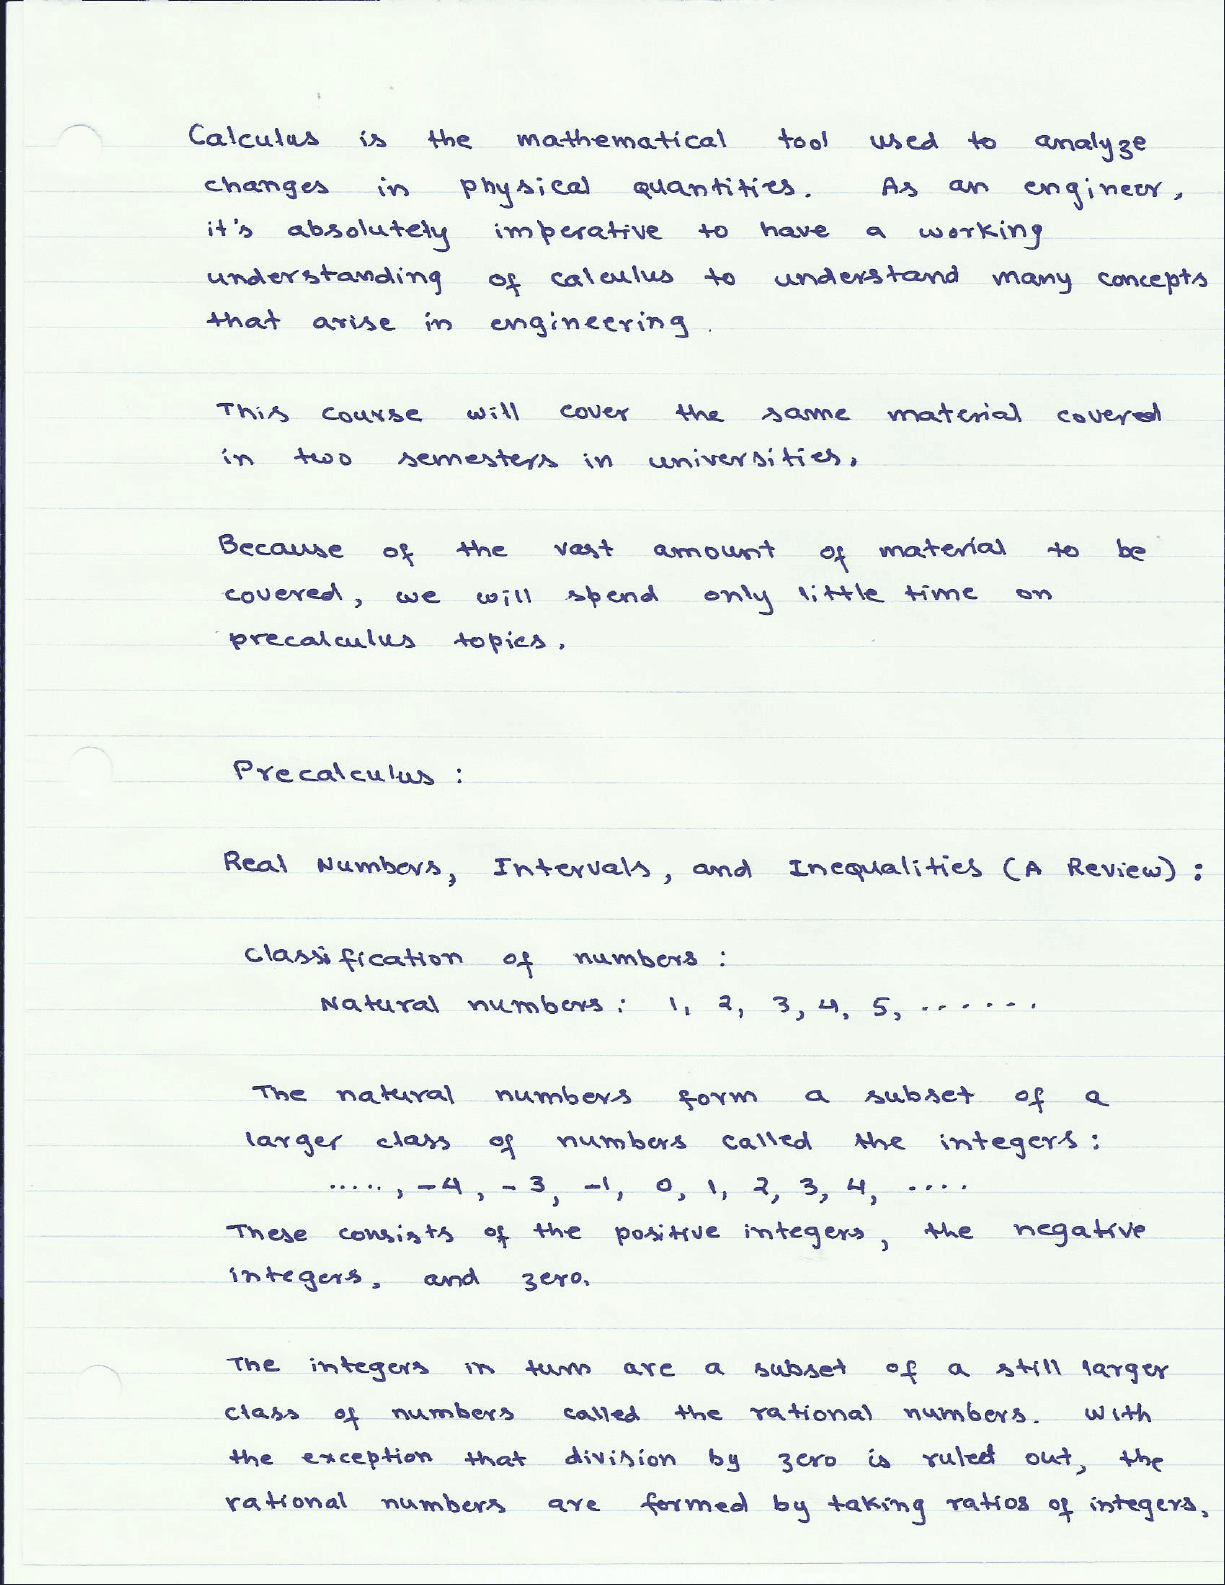 Calculus is the mathematical tool used to analyze
changes in physical quantities. As an engineer,
it's absolutely imperative to have a working
understanding of calculus to understand many concepts
that arise in engineering.
This course will cover the same material covered
in two semesters in universities.
Because of the vast amount of material to be
covered, we will spend only little time on
precalculus topics.
Precalculus :
Real Numbers, Intervals, and Inequalities (A Review) :
Classification of numbers :
Natural numbers : 1, 2, 3, 4, 5, .......
The natural numbers form a subset of a
larger class of numbers called the integers :
....., -4, -3, -1, 0, 1, 2, 3, 4, ....
These consists of the positive integers, the negative
integers, and zero.
The integers in turn are a subset of a still larger
class of numbers called the rational numbers. With
the exception that division by zero is ruled out, the
rational numbers are formed by taking ratios of integers,